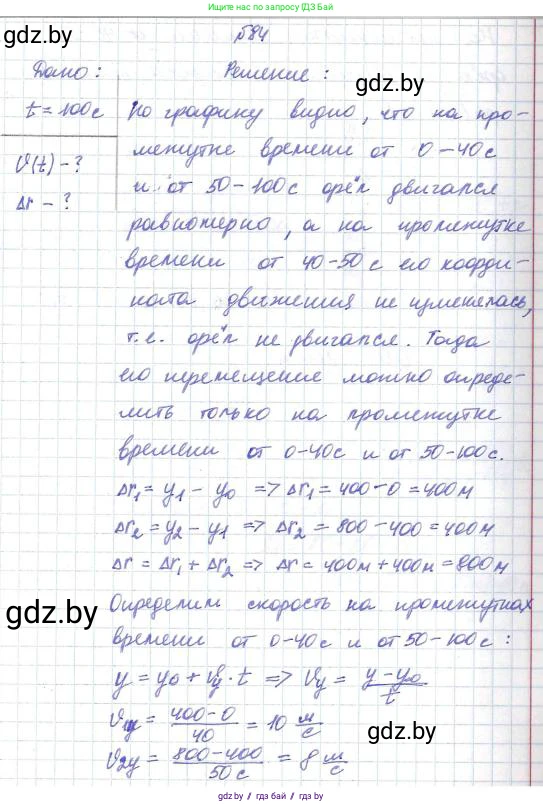 Пишите нам на телеграм @gdz_by_bot в разделе ДЗ Бай
gdz.by
№84
Дано:
Решение:
gdz.by
t = 100с
По графику видно, что на про-
межутке времени от 0-40с
V(t) - ?
и от 50-100с орёл двигался
Δr - ?
равномерно, а на промежутке
времени от 40-50с его коорди-
ната движения не изменялась,
т.е. орёл не двигался. Тогда
его перемещение можно опреде-
лить только на промежутке
времени от 0-40с и от 50-100с.
Δr₁ = y₁ - y₀ => Δr₁ = 400-0 = 400м
Δr₂ = y₂ - y₁ => Δr₂ = 800-400 = 400м
Δr = Δr₁ + Δr₂ => Δr = 400м + 400м = 800м
gdz.by
Определим скорость на промежутках
времени от 0-40с и от 50-100с:
y = y₀ + Vy · t => Vy = (y-y₀)/t
V₁y = (400-0)/40 = 10 м/с
gdz.by
V₂y = (800-400)/50с = 8 м/с
gdz.by / гдз бай / gdz.by